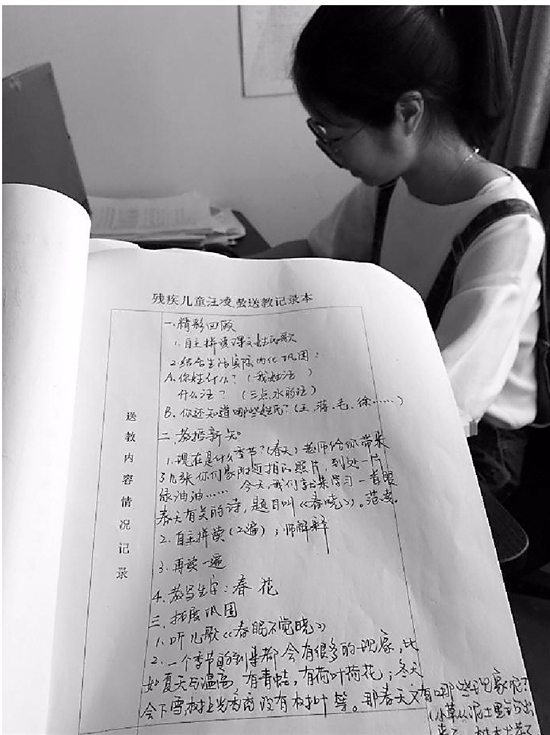 残疾儿童汪凌驁送教记录本
送教内容情况记录
一、精彩回顾
1. 自主拼读课文姓氏歌
2. 结合生活实际内化巩固:
A. 你姓什么?(我姓汪)
什么汪?(三点水的汪)
B. 你还知道哪些姓氏?(王、蒋、毛、徐……)
二、教授新知
1. 现在是什么季节?(春天)老师给你带来
了几张你们家附近拍的照片,到处一片
绿油油……今天,我们就来学习一首跟
春天有关的诗,题目叫《春晓》。范读。
2. 自主拼读(2遍);师解释
3. 再读一遍
4. 教写生字:春 花
三、拓展巩固
1. 听儿歌《春眠不觉晓》
2. 一个季节的到来都会有很多的现象,比
如夏天气温高,有青蛙,有荷叶荷花;冬天
会下雪,树上光秃秃没有树叶等。那春天又有哪些现象呢?
(小草从泥土里钻出
来了,树木长芽了